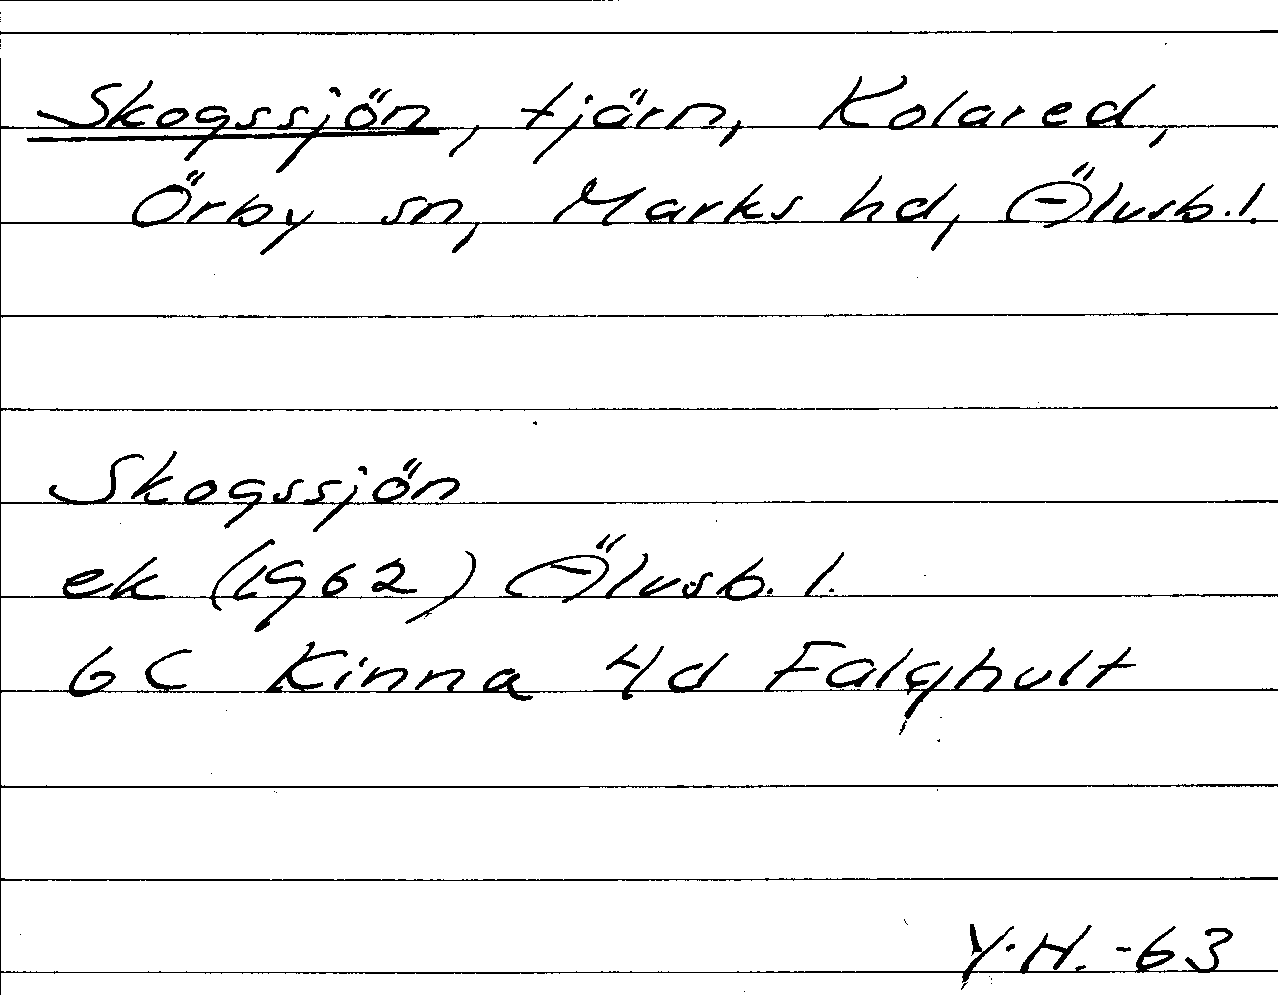 Skogssjön, tjärn, Kolared,
Örby sn, Marks hd, Älvsb. l.
Skogssjön
ek (1962) Älvsb. l.
6C Kinna 4d Falghult
Y.H. -63